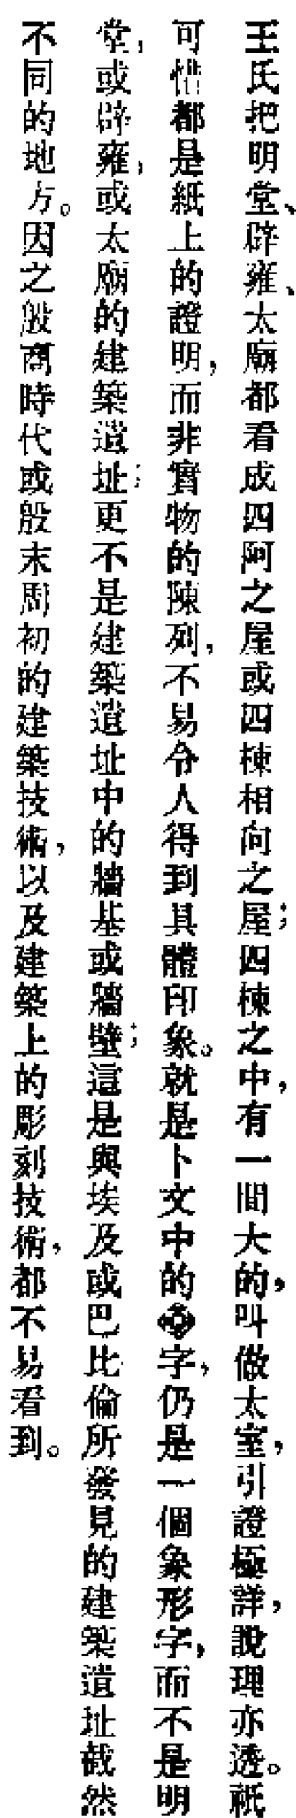 王氏把明堂、辟雍、太廟都看成四阿之屋或四棟相向之屋；四棟之中，有一間大的，叫做太室，引證極詳，說理亦透。祇
可惜都是紙上的證明，而非實物的陳列，不易令人得到具體印象。就是卜文中的字，仍是一個象形字，而不是明
堂，或辟雍，或太廟的建築遺址；更不是建築遺址中的牆基或牆壁；這是與埃及或巴比倫所發見的建築遺址截然
不同的地方。因之殷商時代或殷末周初的建築技術，以及建築上的彫刻技術，都不易看到。